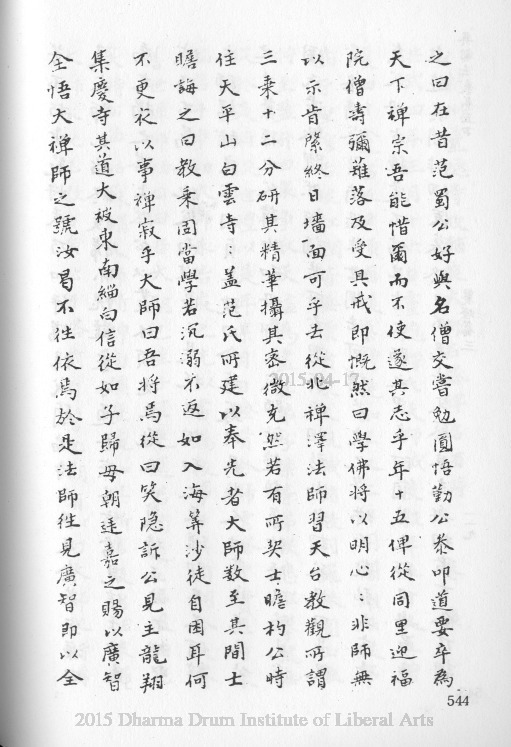 之曰在昔范蜀公好與名僧交嘗勉圓悟勤公叅叩道要卒為
天下禅宗吾能惜爾而不使遂其志乎年十五俾從同里迎福
院僧壽彌薙落及受具戒即慨然曰學佛將以明心心非師無
以示肯綮終日墻面可乎去從北禅澤法師習天台教觀所謂
三乗十二分研其精華攝其密微充然若有所契士瞻杓公時
住大平山白雲寺寺蓋范氏所建以奉先者大師数至其間士
瞻誨之曰教乗固當學若沉溺不返如入海筭沙徒自困耳何
不更衣以事禅寂乎大師曰吾將焉從曰笑隐訢公見主龍翔
集慶寺其道大被東南緇白信從如子歸母朝廷嘉之賜以廣智
全悟大禅師之號汝曷不往依焉於是法師往見廣智即以全
544
2015-04-17
2015 Dharma Drum Institute of Liberal Arts